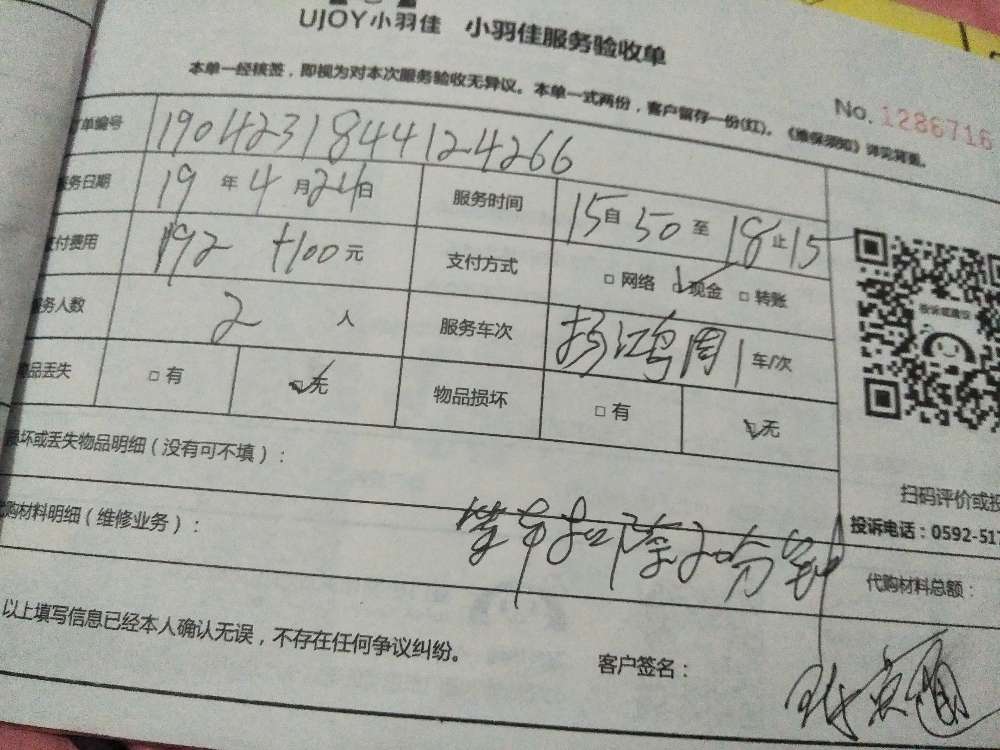 UJOY小羽佳 小羽佳服务验收单
本单一经核签，即视为对本次服务验收无异议。本单一式两份，客户留存一份(红)。《维保须知》详见背面。
No. 1286716
订单编号 190423184412 4266
服务日期 19年4月24日 服务时间 15自50至18止15
支付费用 192 +100元 支付方式 □网络 ☑现金 □转账
服务人数 2人 服务车次 杨鸿周 1车/次
物品丢失 □有 ☑无 物品损坏 □有 ☑无
损坏或丢失物品明细（没有可不填）：
代购材料明细（维修业务）：
扫码评价或投
投诉电话：0592-517
代购材料总额：
以上填写信息已经本人确认无误，不存在任何争议纠纷。
客户签名：